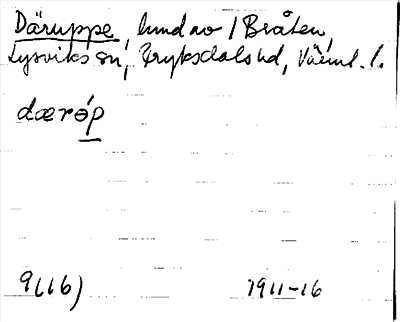 Däruppe, hmd av / Bråten,
Lysviks sn, Fryksdals hd, Värml. l.
dæróp
9(16) 1911-16